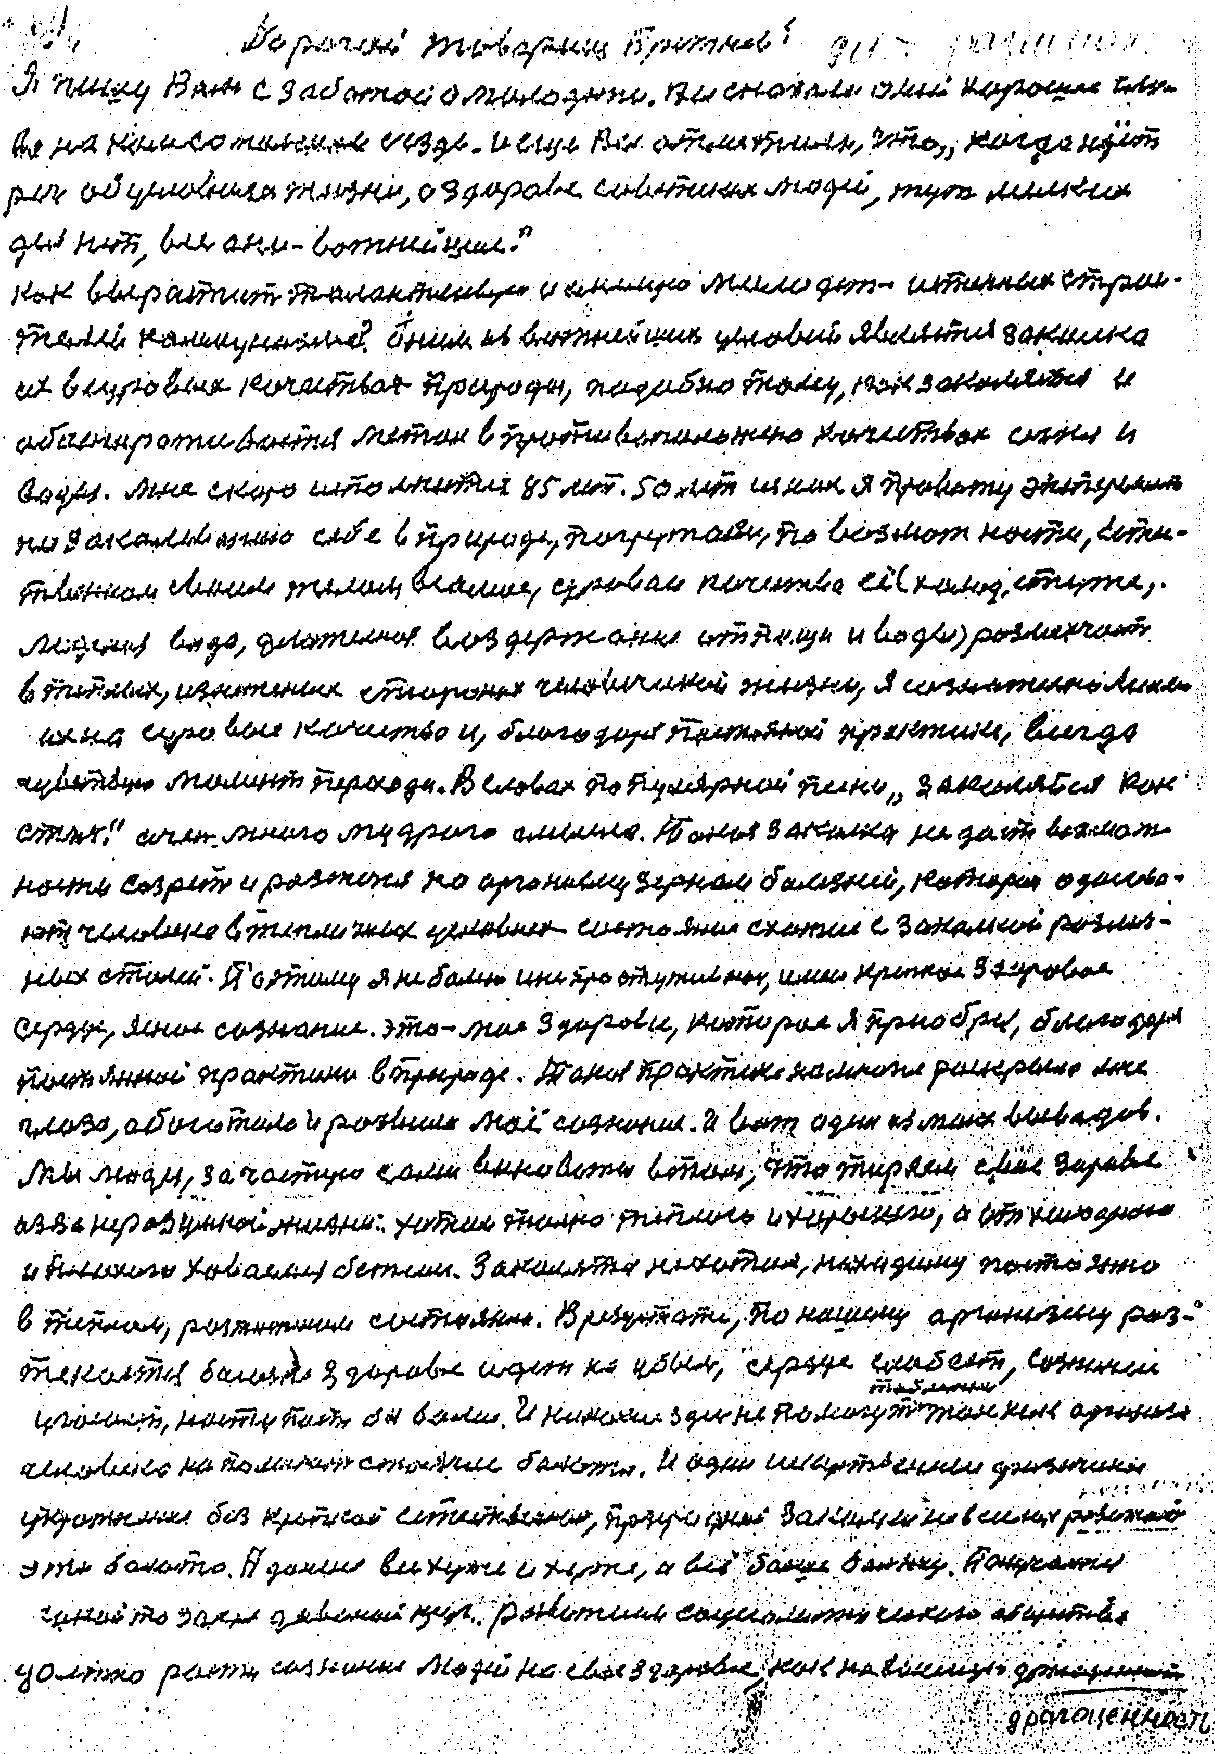 Дорогой товарищ Брежнев!
Я пишу Вам с заботой о молодежи. Вы сказали о ней хорошие сло-
ва на комсомольском съезде. И еще Вы отметили, что „когда идёт
реч об условиях жизни, о здорове советских людей, тут мелких
дел нет, все они – вожнейшие."
Как вырастит талантливую и сильную молодеж – истиных строи-
телей комунизма? Одним из вожнейших условий является закалка
их в суровых качествах природы, подобно тому, как закаляется и
в противоположено качествах огня и
воды. Мне скоro исполнится 85 лет. 50 лет из них я провожу эксперимент
по закаливанию себе в природе, погружаясь, по возможности, естес-
твенном своим телом в самые суровые качества её (холод, стужа,
ледяная вода, длительное воздержание от пищи и воды)
в тёплых, изнеженых сторонах человеческой жизни, я сознательно
их на суровые качества и, благодаря постоянной практике, всегда
чувствую момент перехода. В словах популярной песни „закаляйся как
сталь!" очен много мудрого смысла. Такая закалка не даст возмож-
ности созреть и развится по организму зернам болезней, которые одолева-
ют человека в тепличных условиях состояние схожие с закалкой различ-
ных сталей. Поэтому я не болею и не простужаюсь, имею крепкое здоровое
сердце, ясное сознание. Это – мое здоровье, которое я приобрел, благодаря
постоянной практики в природе. Такая практика на многое раскрыла мне
глаза, обогатила и развила моё сознание. И вот один из моих выводов.
Мы люди, зачастую сами виноваты в том, что теряем свое здоровье
из за неразумной жизни: хотим только тёплого и хорошего, а от холодного
и плохого ховаемся бежим. Закалятся не хотим, находимся постоянно
в тёплом, состояние. В результате, по нашему организму раз-
текаются болезни здоровье идет на убыль, сердце слабеет, сознание
угасает, наступает болезнь. И никакие здесь не помогут таблетки так как организм
человека наполняет стоячие болото. И одни физически
упражнение без крепкой естественной, природной закалки не в силах развеять
это болото. А дальше все хуже и хуже, а всё больше болему. Получается
какой то заколдованый круг. Развитие социалистического общества
должно расти сознание людей на свое здоровье, как на высшую
драгоценность